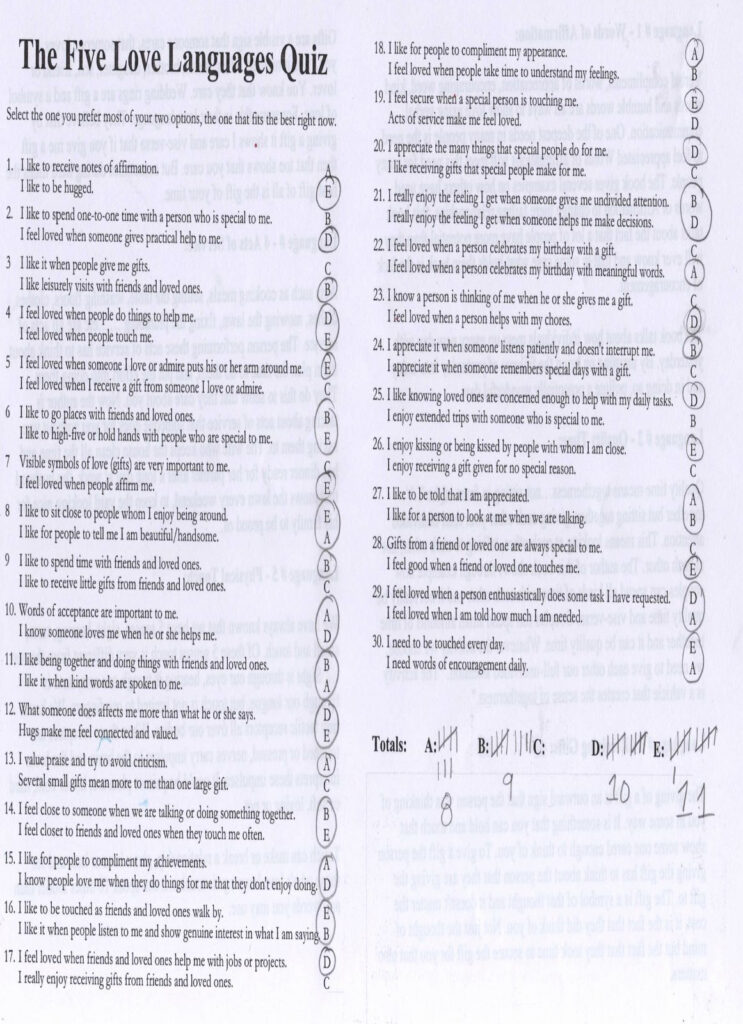 The Five Love Languages Quiz
Select the one you prefer most of your two options, the one that fits the best right now.
1. I like to receive notes of affirmation. A
I like to be hugged. E
2. I like to spend one-to-one time with a person who is special to me. B
I feel loved when someone gives practical help to me. D
3 I like it when people give me gifts. C
I like leisurely visits with friends and loved ones. B
4 I feel loved when people do things to help me. D
I feel loved when people touch me. E
5 I feel loved when someone I love or admire puts his or her arm around me. E
I feel loved when I receive a gift from someone I love or admire. C
6 I like to go places with friends and loved ones. B
I like to high-five or hold hands with people who are special to me. E
7 Visible symbols of love (gifts) are very important to me. C
I feel loved when people affirm me. E
8 I like to sit close to people whom I enjoy being around. E
I like for people to tell me I am beautiful/handsome. A
9 I like to spend time with friends and loved ones. B
I like to receive little gifts from friends and loved ones. C
10. Words of acceptance are important to me. A
I know someone loves me when he or she helps me. D
11. I like being together and doing things with friends and loved ones. B
I like it when kind words are spoken to me. A
12. What someone does affects me more than what he or she says. D
Hugs make me feel connected and valued. E
13. I value praise and try to avoid criticism. A
Several small gifts mean more to me than one large gift. C
14. I feel close to someone when we are talking or doing something together. B
I feel closer to friends and loved ones when they touch me often. E
15. I like for people to compliment my achievements. A
I know people love me when they do things for me that they don't enjoy doing. D
16. I like to be touched as friends and loved ones walk by. E
I like it when people listen to me and show genuine interest in what I am saying. B
17. I feel loved when friends and loved ones help me with jobs or projects. D
I really enjoy receiving gifts from friends and loved ones. C
18. I like for people to compliment my appearance. A
I feel loved when people take time to understand my feelings. B
19. I feel secure when a special person is touching me. E
Acts of service make me feel loved. D
20. I appreciate the many things that special people do for me. D
I like receiving gifts that special people make for me. C
21. I really enjoy the feeling I get when someone gives me undivided attention. B
I really enjoy the feeling I get when someone helps me make decisions. D
22. I feel loved when a person celebrates my birthday with a gift. C
I feel loved when a person celebrates my birthday with meaningful words. A
23. I know a person is thinking of me when he or she gives me a gift. C
I feel loved when a person helps with my chores. D
24. I appreciate it when someone listens patiently and doesn't interrupt me. B
I appreciate it when someone remembers special days with a gift. C
25. I like knowing loved ones are concerned enough to help with my daily tasks. D
I enjoy extended trips with someone who is special to me. B
26. I enjoy kissing or being kissed by people with whom I am close. E
I enjoy receiving a gift given for no special reason. C
27. I like to be told that I am appreciated. A
I like for a person to look at me when we are talking. B
28. Gifts from a friend or loved one are always special to me. C
I feel good when a friend or loved one touches me. E
29. I feel loved when a person enthusiastically does some task I have requested. D
I feel loved when I am told how much I am needed. A
30. I need to be touched every day. E
I need words of encouragement daily. A
Totals: A: B: C: D: E:
8 9 10 11